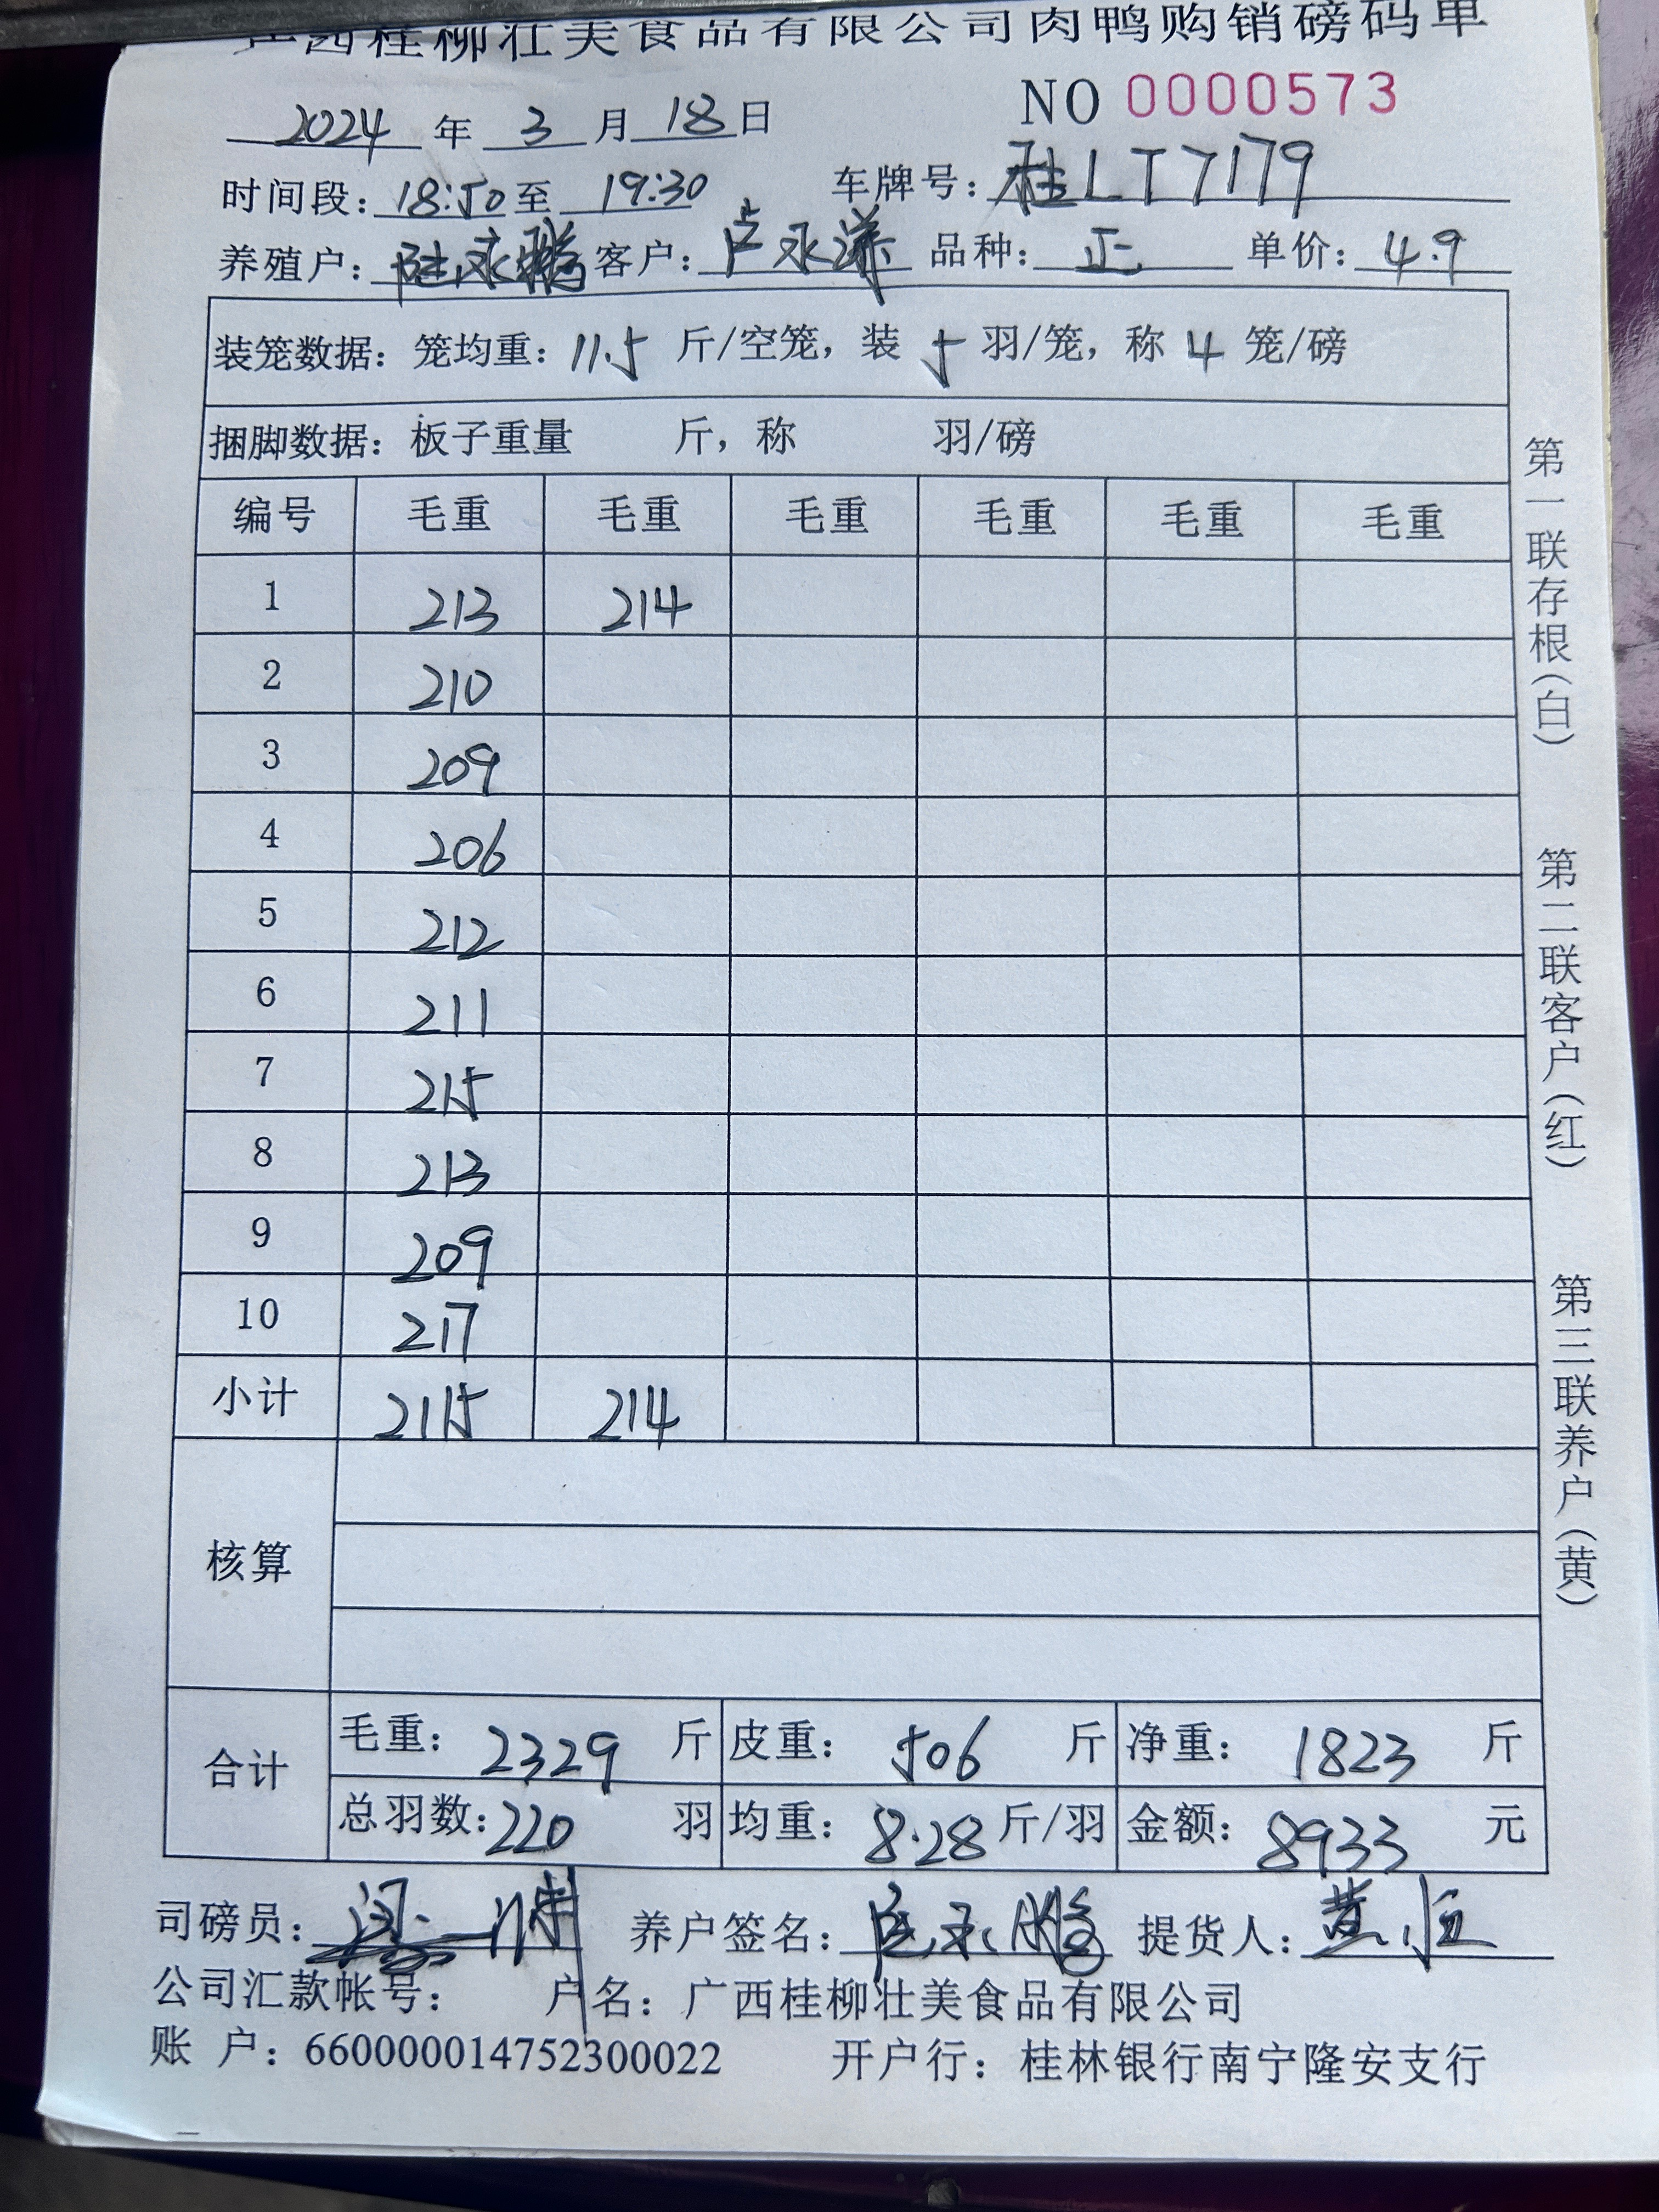 广西桂柳壮美食品有限公司肉鸭购销磅码单
NO 0000573
2024 年 3 月 18 日
时间段: 18:50 至 19:30 车牌号: 桂LT7179
养殖户: 陆永鹏 客户: 卢永谦 品种: 正 单价: 4.9
装笼数据: 笼均重: 11.5 斤/空笼, 装 5 羽/笼, 称 4 笼/磅
捆脚数据: 板子重量 斤, 称 羽/磅
编号 毛重 毛重 毛重 毛重 毛重 毛重
1 213 214
2 210
3 209
4 206
5 212
6 211
7 215
8 213
9 209
10 217
小计 2115 214
核算
合计 毛重: 2329 斤 皮重: 506 斤 净重: 1823 斤
总羽数: 220 羽 均重: 8.28 斤/羽 金额: 8933 元
司磅员: 养户签名: 陆永鹏 提货人: 黄恒
公司汇款帐号: 户名: 广西桂柳壮美食品有限公司
账 户: 660000014752300022 开户行: 桂林银行南宁隆安支行
第一联存根(白)
第二联客户(红)
第三联养户(黄)